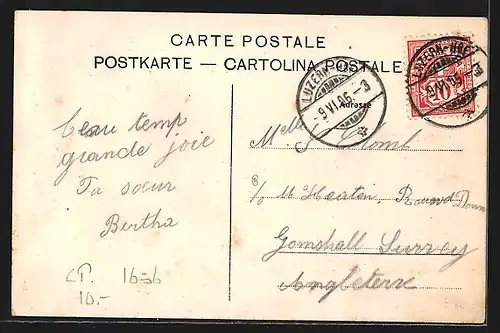 CARTE POSTALE
POSTKARTE — CARTOLINA POSTALE
LUZERN
-9 VI 06.-3
LUZERN
9 VI 06
Adresse
Beau temp
grande joie
Ta sœur
Bertha
Melle
c/o M Heaton, Round Down
Gomshall Surrey
Angleterre
CP. 1656
10.-